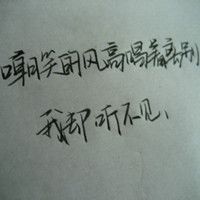 嘲笑的风高唱着离别
我却听不见、